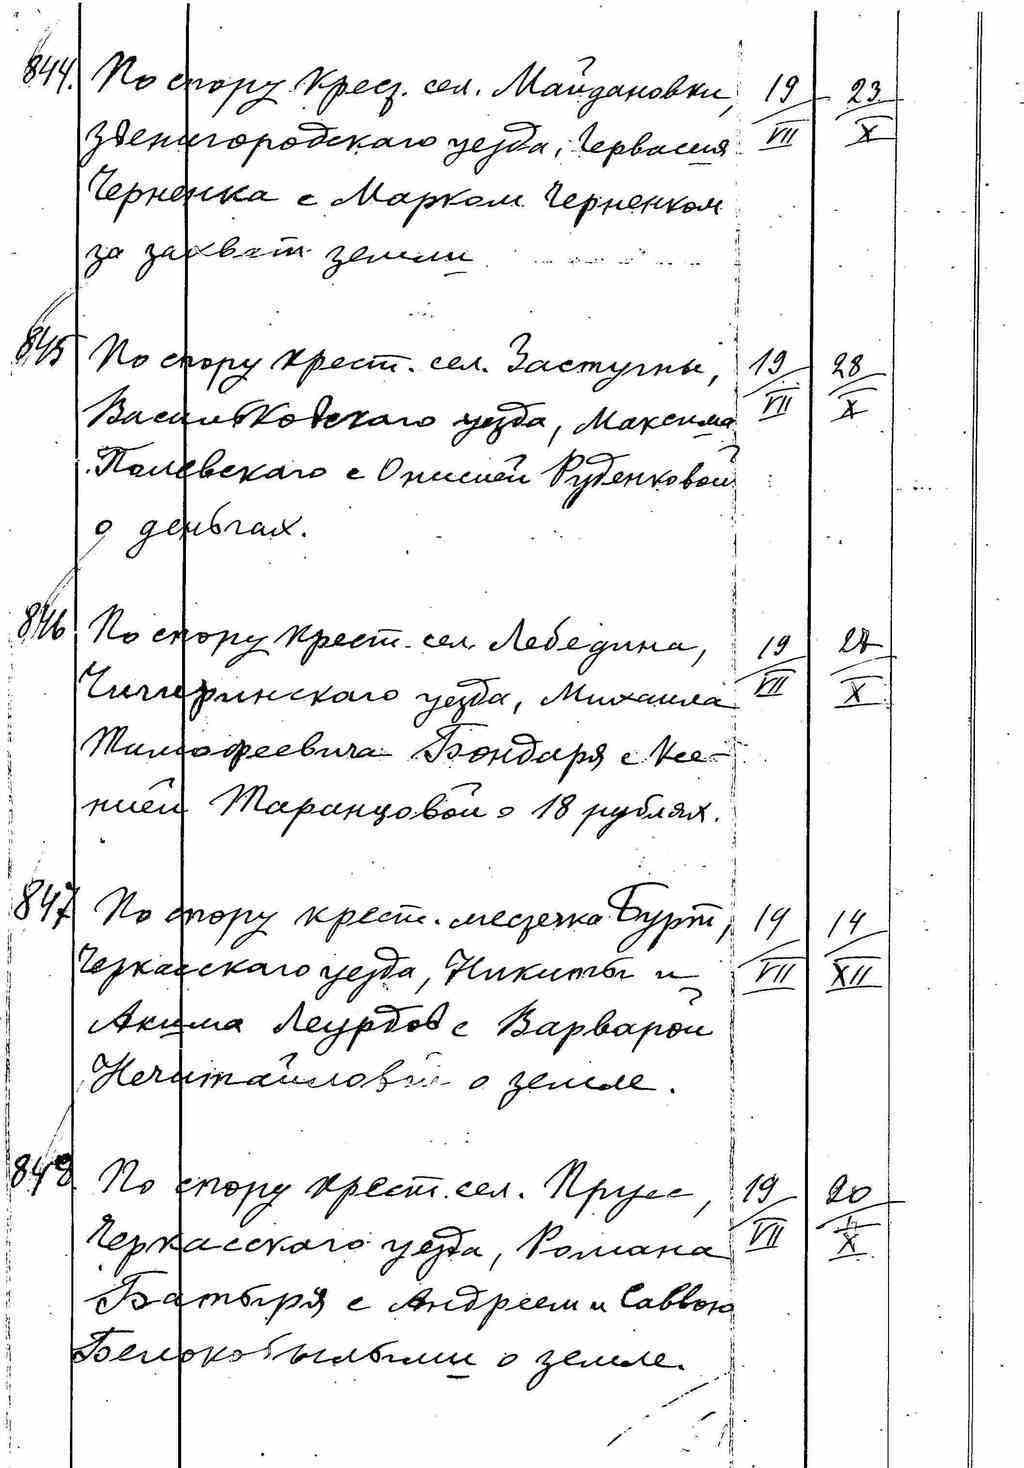 844. По спору крест. сел. Майдановки, 19/VII 23/X
Звенигородскаго уезда, Гервасия
Черненка с Марком Черненком
за захват земли
845 По спору крест. сел. Застугны, 19/VII 28/X
Васильковскаго уезда, Максима
Полевскаго с Онисией Руденковой
о деньгах.
846 По спору крест. сел. Лебедина, 19/VII X
Чигиринскаго уезда, Михаила
Тимофеевича Бондаря с Ксе-
нией Таранцовой о 18 рублях.
847 По спору крест. местечка Бурт, 19/VII 14/XII
Черкасскаго уезда, Никиты и
Акима с Варварой
Нечитайловой о земле.
848 По спору крест. сел. Прусс, 19/VII 20/X
Черкасского уезда, Романа
Батыря с Андреем и Саввою
Белокобылыми о земле.